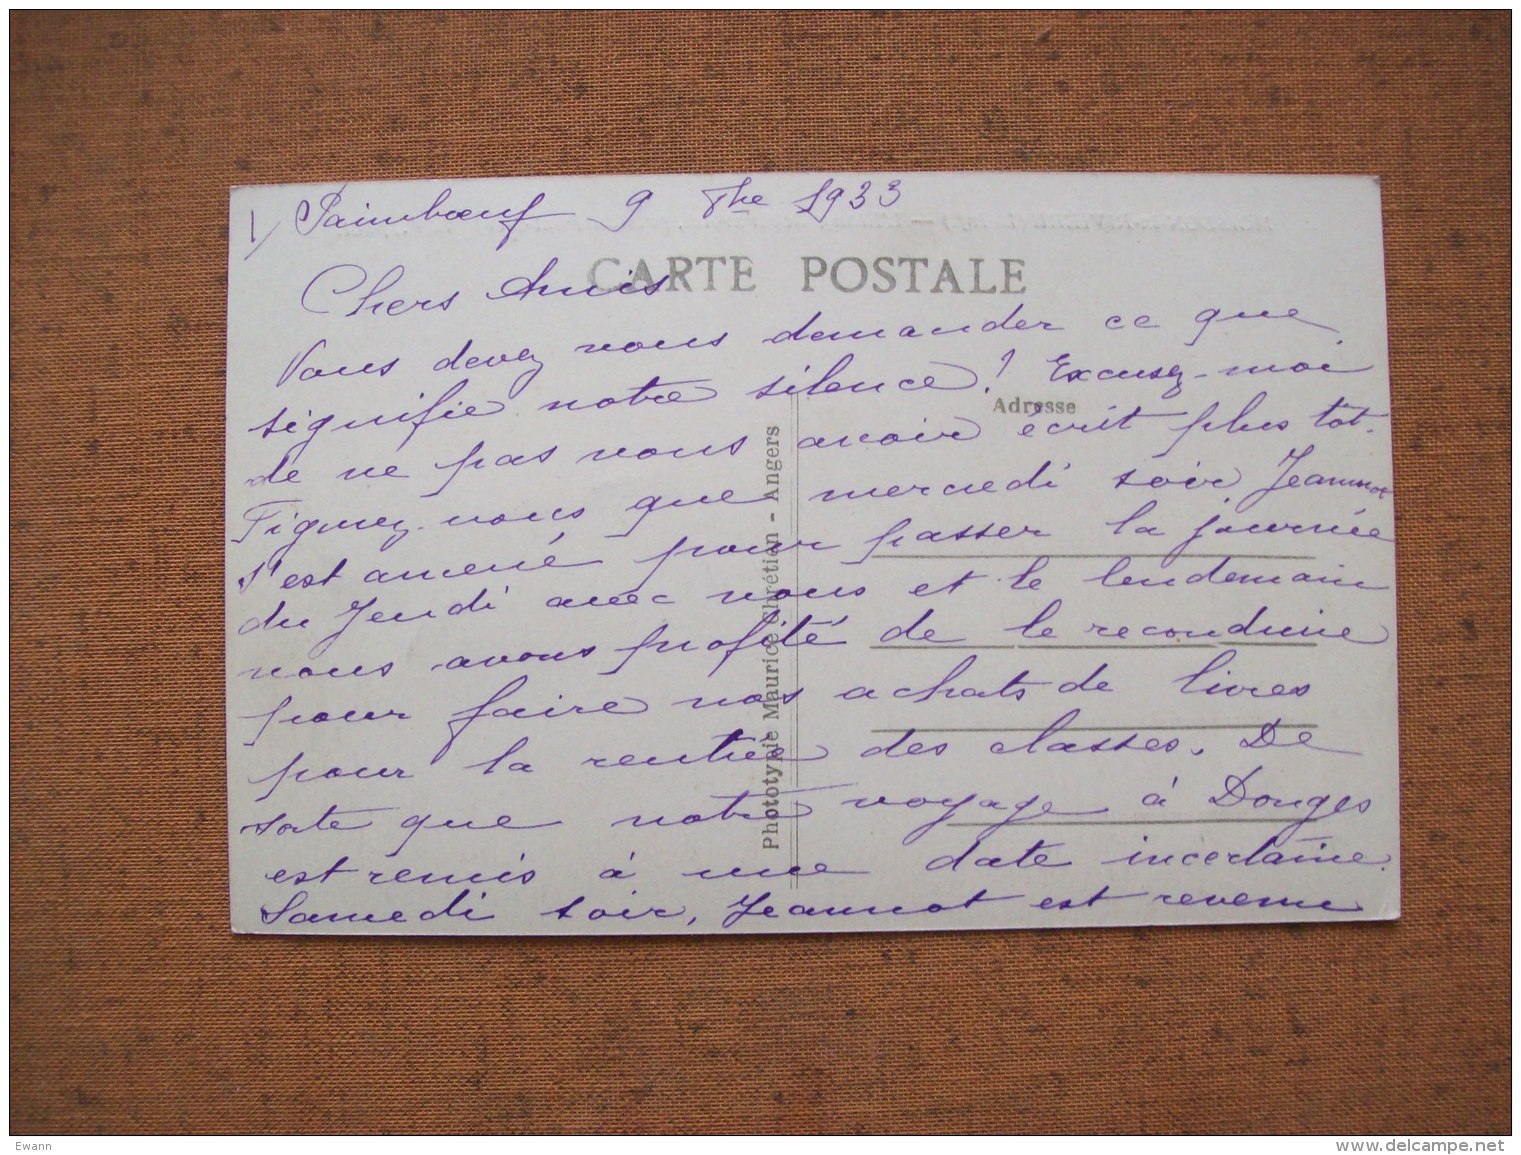 1/ Paimbœuf 9 8bre 1933
CARTE POSTALE
Chers Amis
Vous devez vous demander ce que
signifie notre silence! Excusez-moi
de ne pas vous avoir écrit plus tôt.
Figurez-vous que mercredi soir Jeannot
s'est amené pour passer la journée
du Jeudi avec nous et le lendemain
nous avons profité de le reconduire
pour faire nos achats de livres
pour la rentrée des classes. De
sorte que notre voyage à Donges
est remis à une date incertaine.
Samedi soir, Jeannot est revenu
Adresse
Phototypie Maurice Chrétien - Angers
Ewann
www.delcampe.net